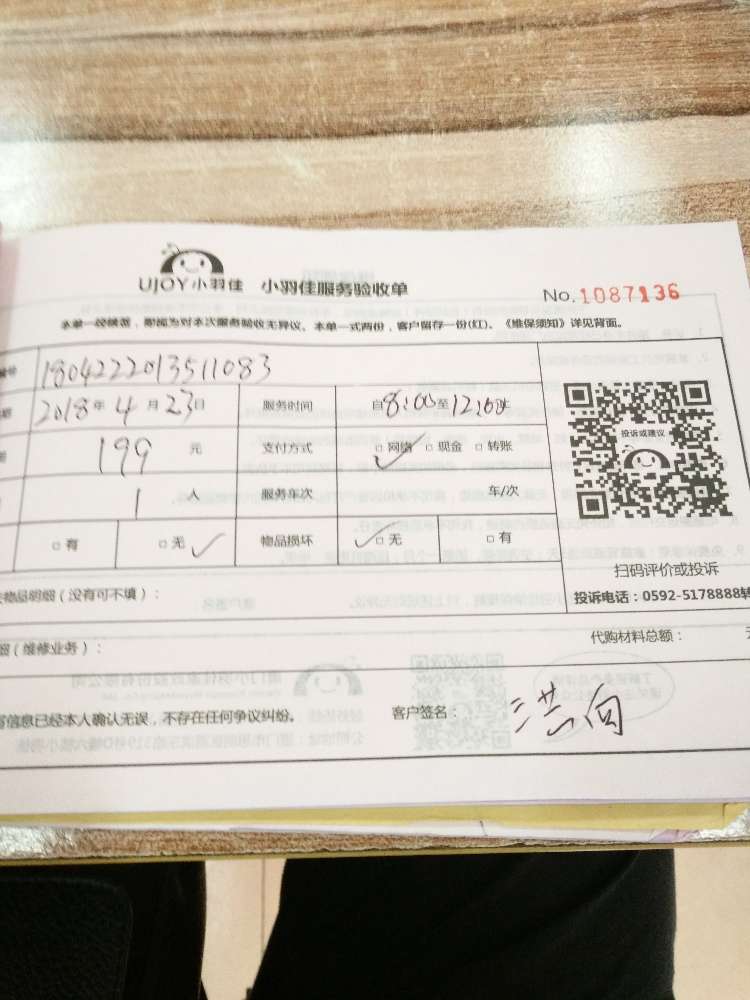 UJOY小羽佳 小羽佳服务验收单 No.1087136
本单一经填签，即视为对本次服务验收无异议。本单一式两份，客户留存一份(红)。《维保须知》详见背面。
180422201351083
2018年4月23日 服务时间 自8:00至12:00止
199元 支付方式 □网络 ✓ □现金 □转账
1人 服务车次 车/次
投诉或建议
□有 □无 ✓ 物品损坏 ✓ □无 □有
扫码评价或投诉
物品明细（没有可不填）：
投诉电话：0592-5178888转
（维修业务）： 代购材料总额：
信息已经本人确认无误，不存在任何争议纠纷。 客户签名：洪向